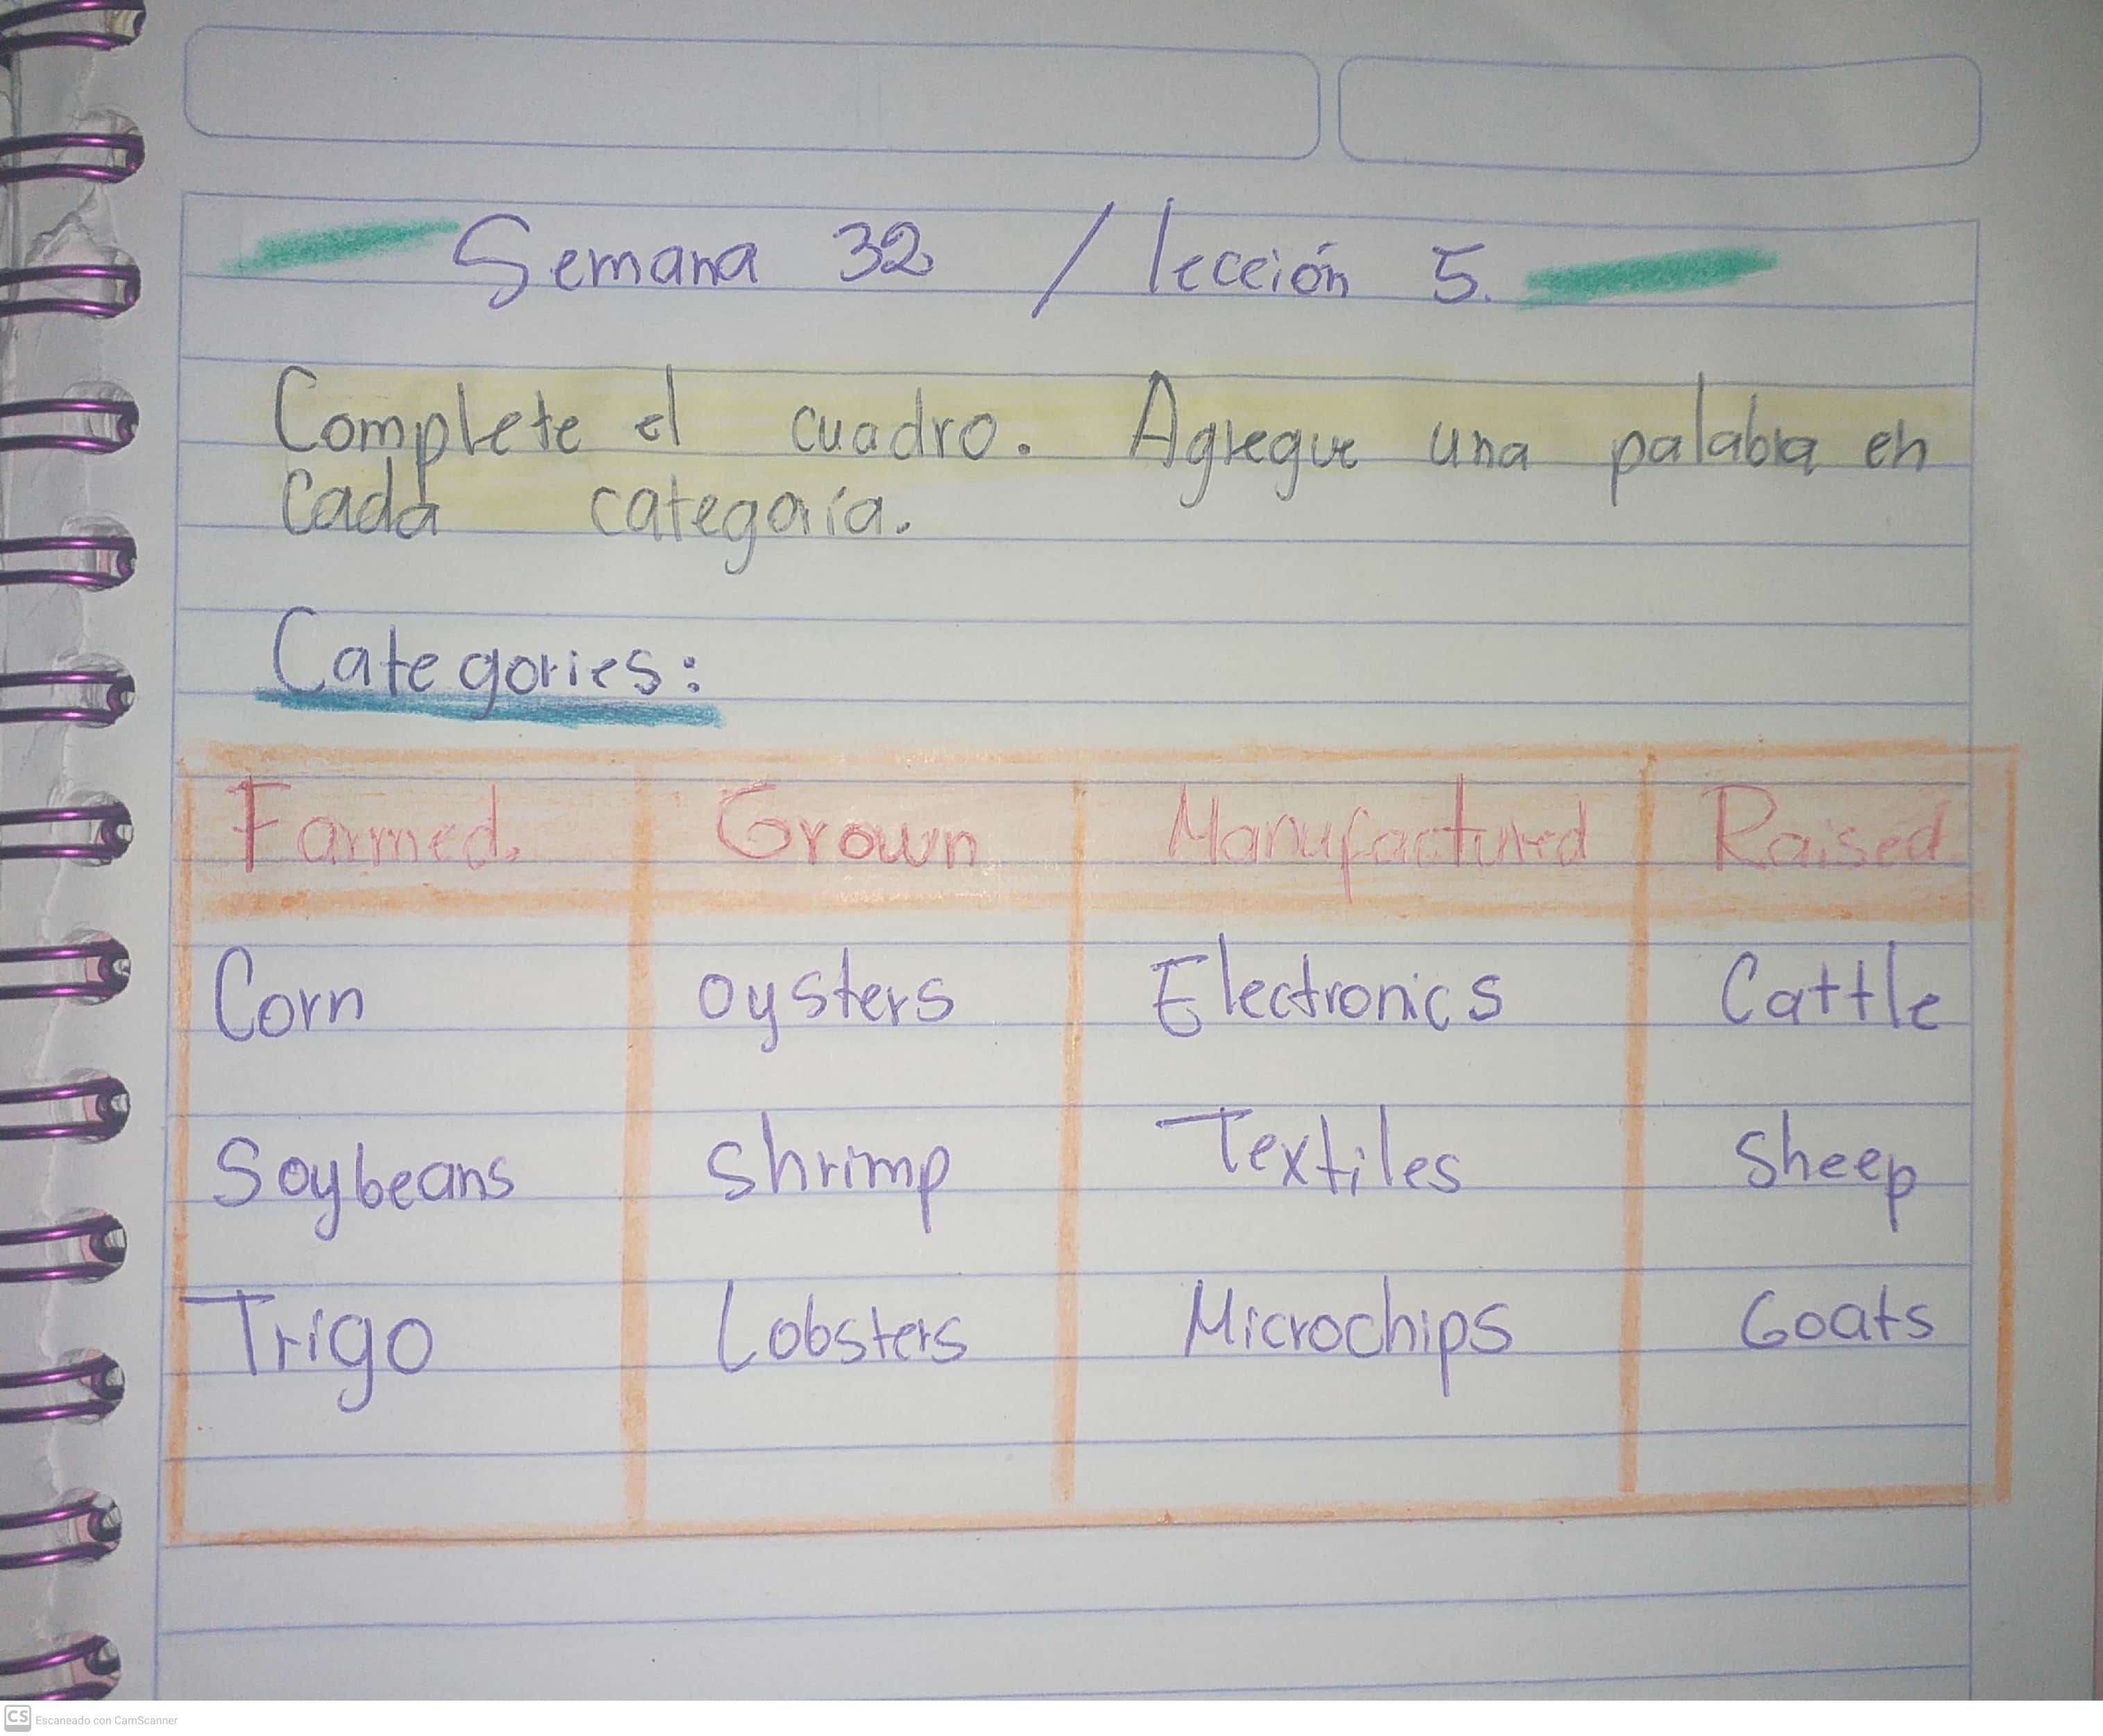 Semana 32 / lección 5.
Complete el cuadro. Agregue una palabra en
cada categoría.
Categories:
Farmed. Grown Manufactured Raised
Corn oysters Electronics Cattle
Soybeans shrimp Textiles sheep
Trigo Lobsters Microchips Goats
CS Escaneado con CamScanner